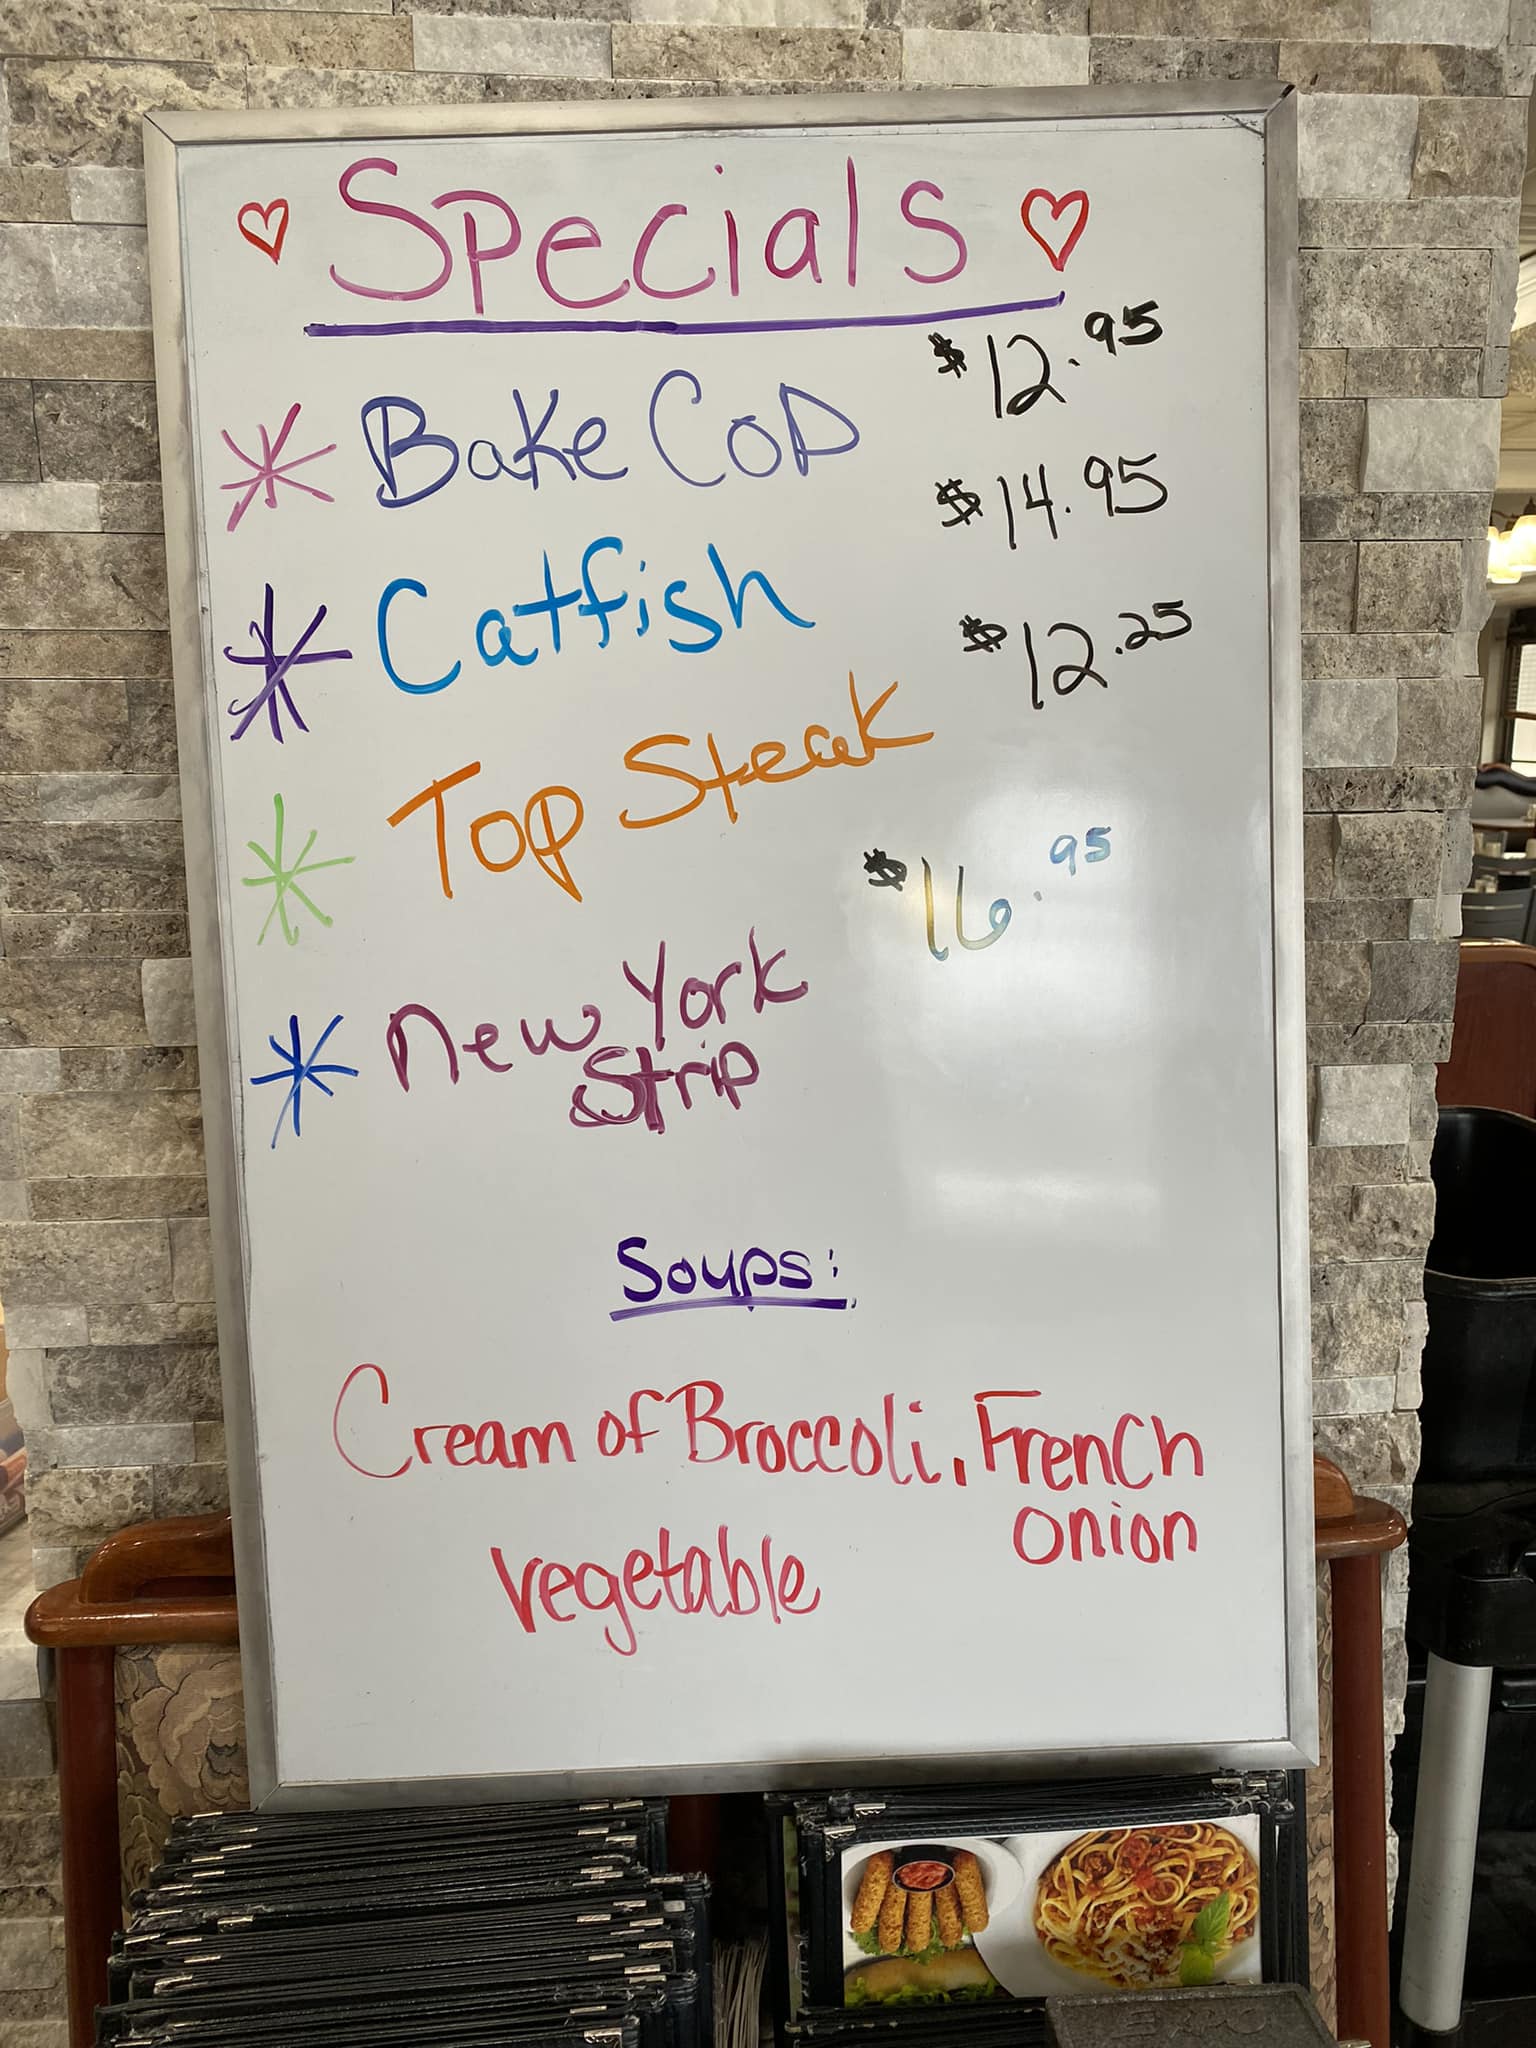 Specials
Bake Cod $12.95
Catfish $14.95
Top Steak $12.25
New York $16.95
Strip
Soups:
Cream of Broccoli, French
onion
Vegetable